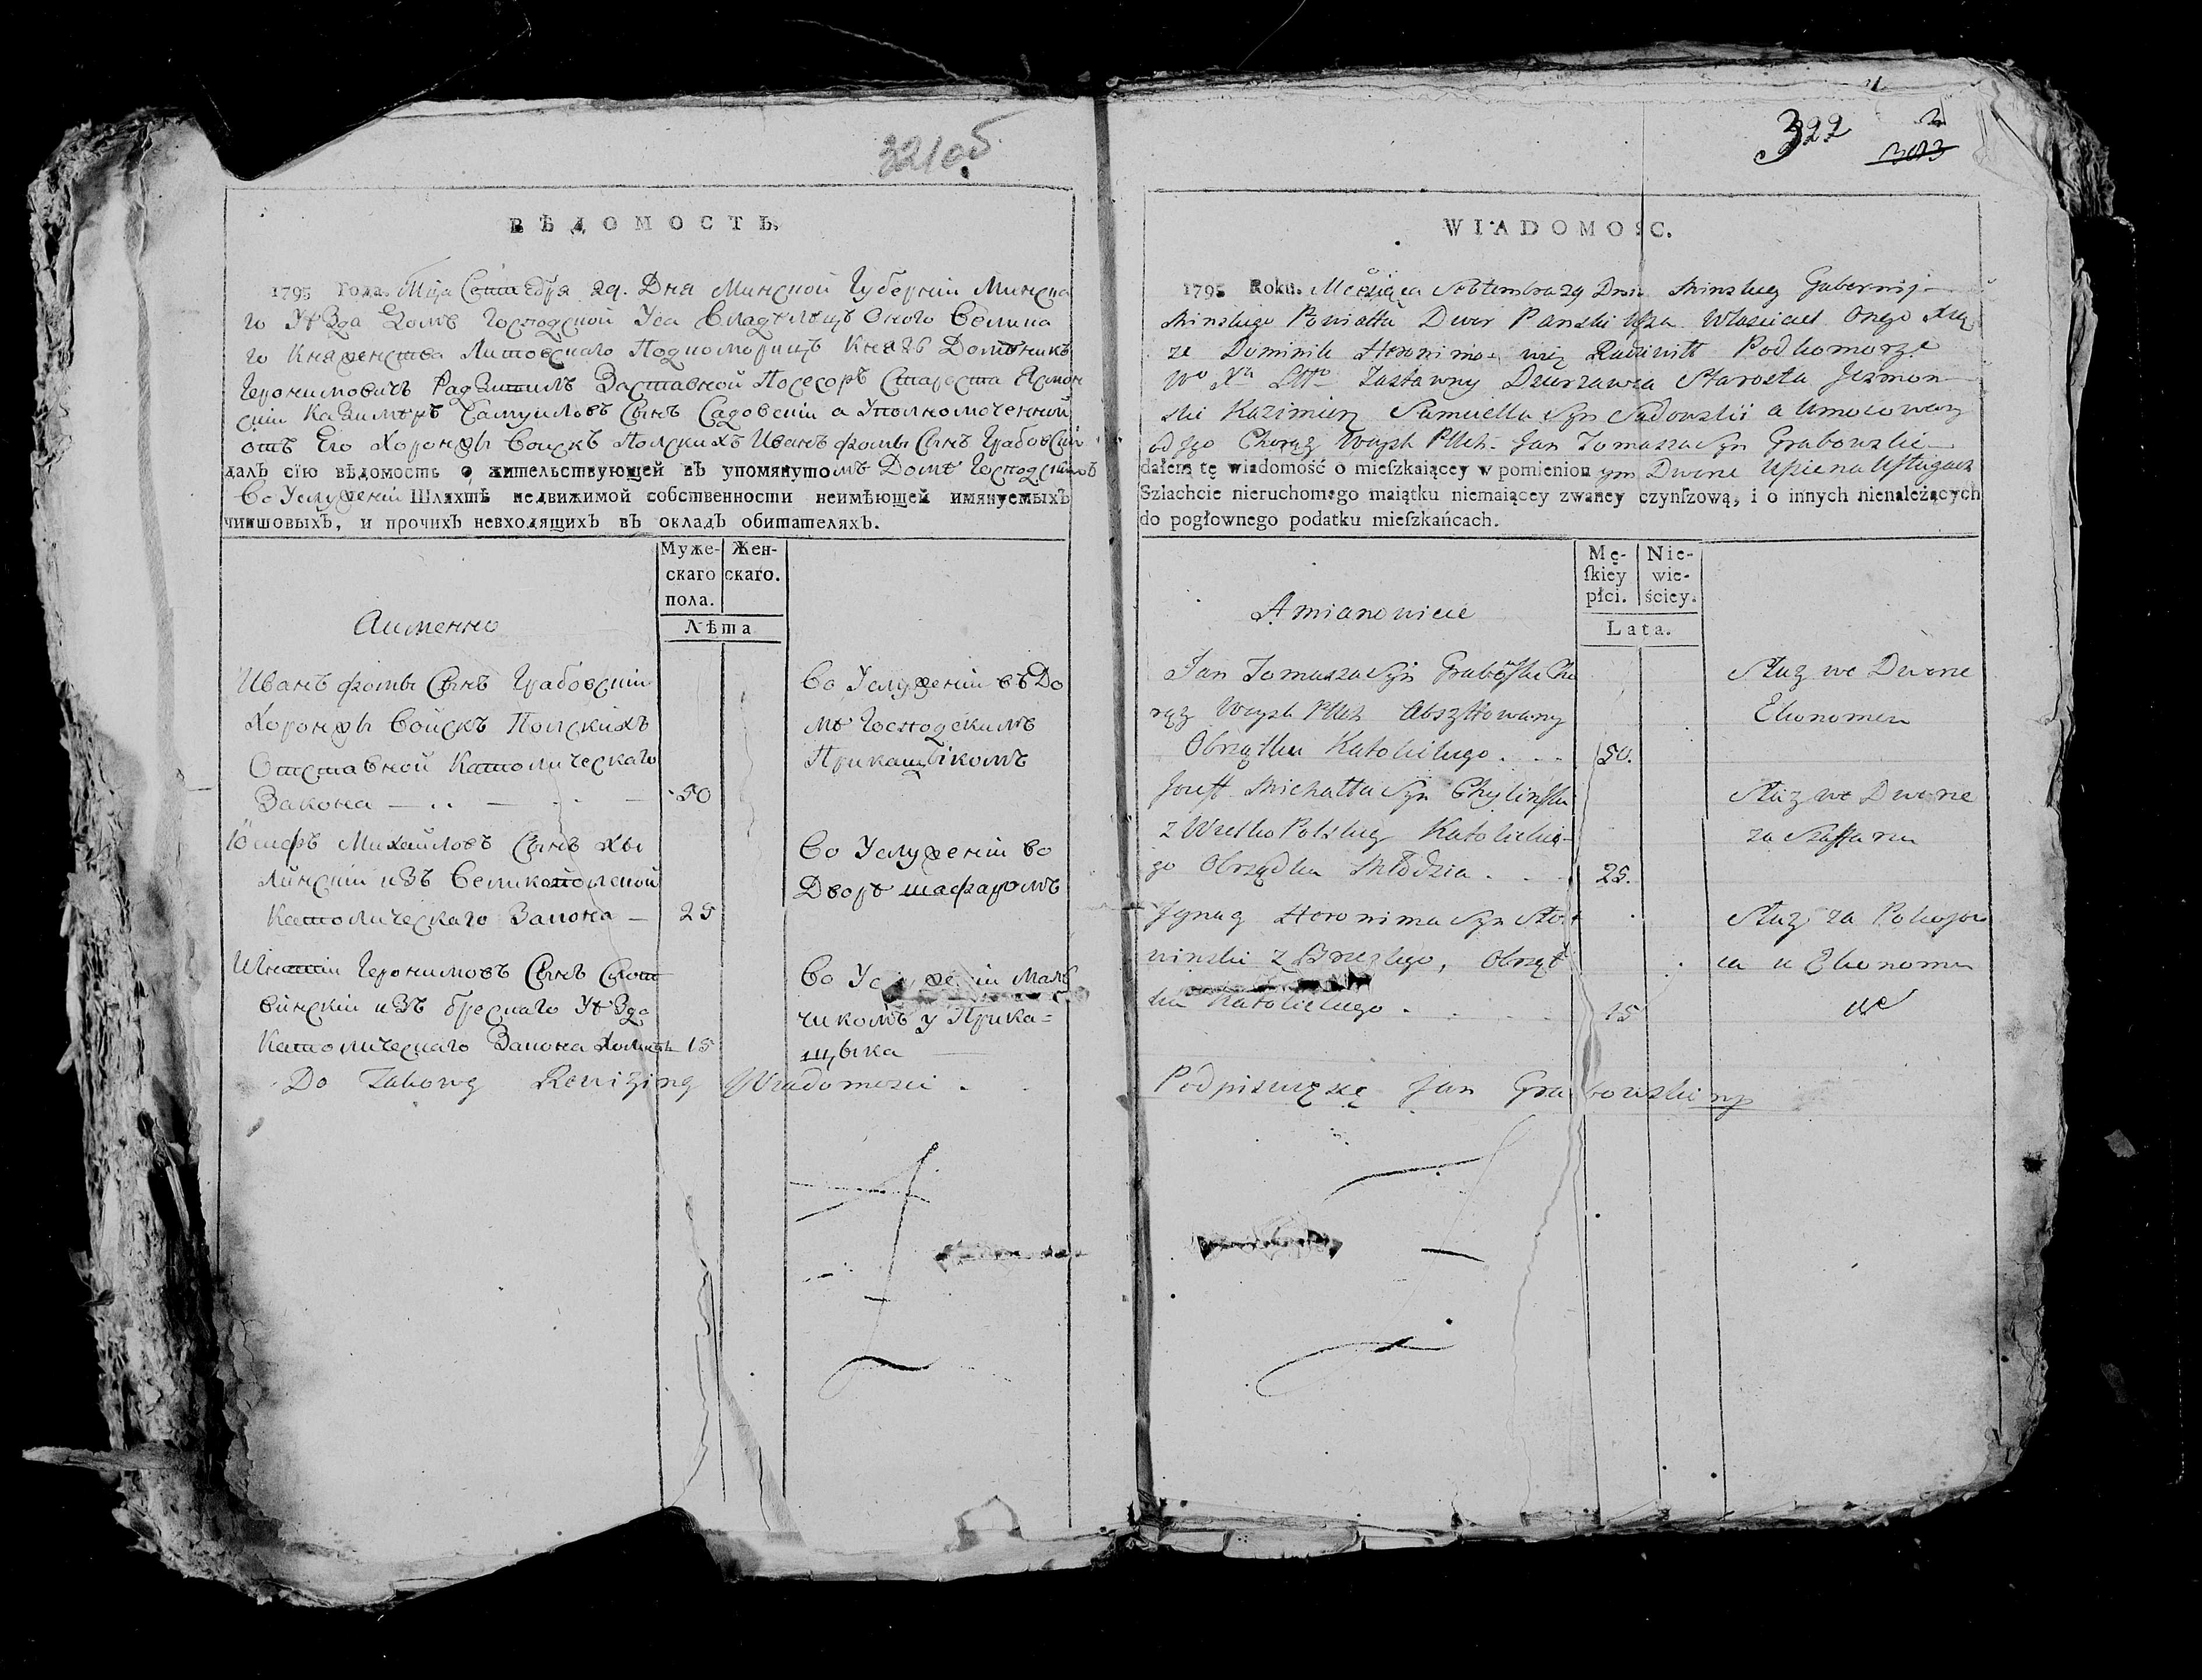 321об
ВѢДОМОСТЬ.
1795 года. Мца Сентебря 29. Дня Минской Губерніи Минска
го Уѣзда Домъ Господской Уса Владѣлецъ Оного Велика
го Княженства Литовскаго Подкоморицъ Князь Доминикъ
Геронимовичъ Радзивилъ Заставной Посесоръ Староста
Казимеръ Самуиловъ Сынъ Садовскіи а Уполномоченной
отъ Его Хоронжи Войскъ Полскихъ Иванъ Фомы Сынъ Грабовскій
далъ сїю вѣдомость о жительствующей въ упомянутомъ Домѣ Господскомъ
Во Услуженіи Шляхтѣ недвижимой собственности неимѣющей имянуемыхъ
чиншовыхъ, и прочихъ невходящихъ въ окладъ обитателяхъ.
Муже-
скаго
пола.
Жен-
скаго.
Лѣта
Аименно
Иванъ Фомы Сынъ Грабовскіи
Хоронжи Войскъ Полскихъ
Отставной Католическаго
Закона 50
Во Услуженіи въ До
мѣ Господскимъ
Прикащикомъ
Іосифъ Михаиловъ Сынъ Хы
линскіи изъ Великополской
Католическаго Закона 25
Во Услуженіи во
Дворѣ шафаромъ
Игнатіи Геронимовъ Сынъ
винскіи изъ Брескаго Уѣзда
Католическаго Закона 15
Во Услуженіи Маль
чикомъ у Прика=
щыка
Do Takowey Rewizyiney Wiadomosci
322
2
WIADOMOSC.
1795 Roku. Miesiąca Septembra 29 Dnia Minskiey Gubernij
Minskiego Powiattu Dwor Panski Usa Własciciel Onego Xią
że Dominik Heronimowicz Radziwitt Podkomorzc
Wo Xa Litto Zastawny Dzierzawca Starosta
Kazimierz Samuella Syn Sadowski a Umocowany
od Jego Chorąży Woysk Jan Tomasza Syn Grabowski
dałem tę wiadomość o mieſzkaiącey w pomienionym Dworze Usie na Usługach
Szlachcie nieruchomego maiątku niemaiącey zwaney czynſzową, i o innych nienależących
do pogłownego podatku mieſzkańcach.
Mę-
ſkiey
płci.
Nie-
wie-
ściey.
Lata.
A mianowicie
Jan Tomasza Syn Grabowski Cho
rąży Woysk Abszytowany
Obrządku Katolickiego 50.
Służy we Dworze
Ekonomem
Jozeff Michałła Syn Chyliński
z Wielko Polskiey Katolickie
go Obrządku Młodzian 25.
Służy we Dworze
za Szaffarza
Jgnacy Heronima Syn
winski z Brzeskiego, Obrząd
ku Katolickiego 15
Służy za Pokojow
ca u Ekonoma
Podpisuię się Jan Grabowski mp